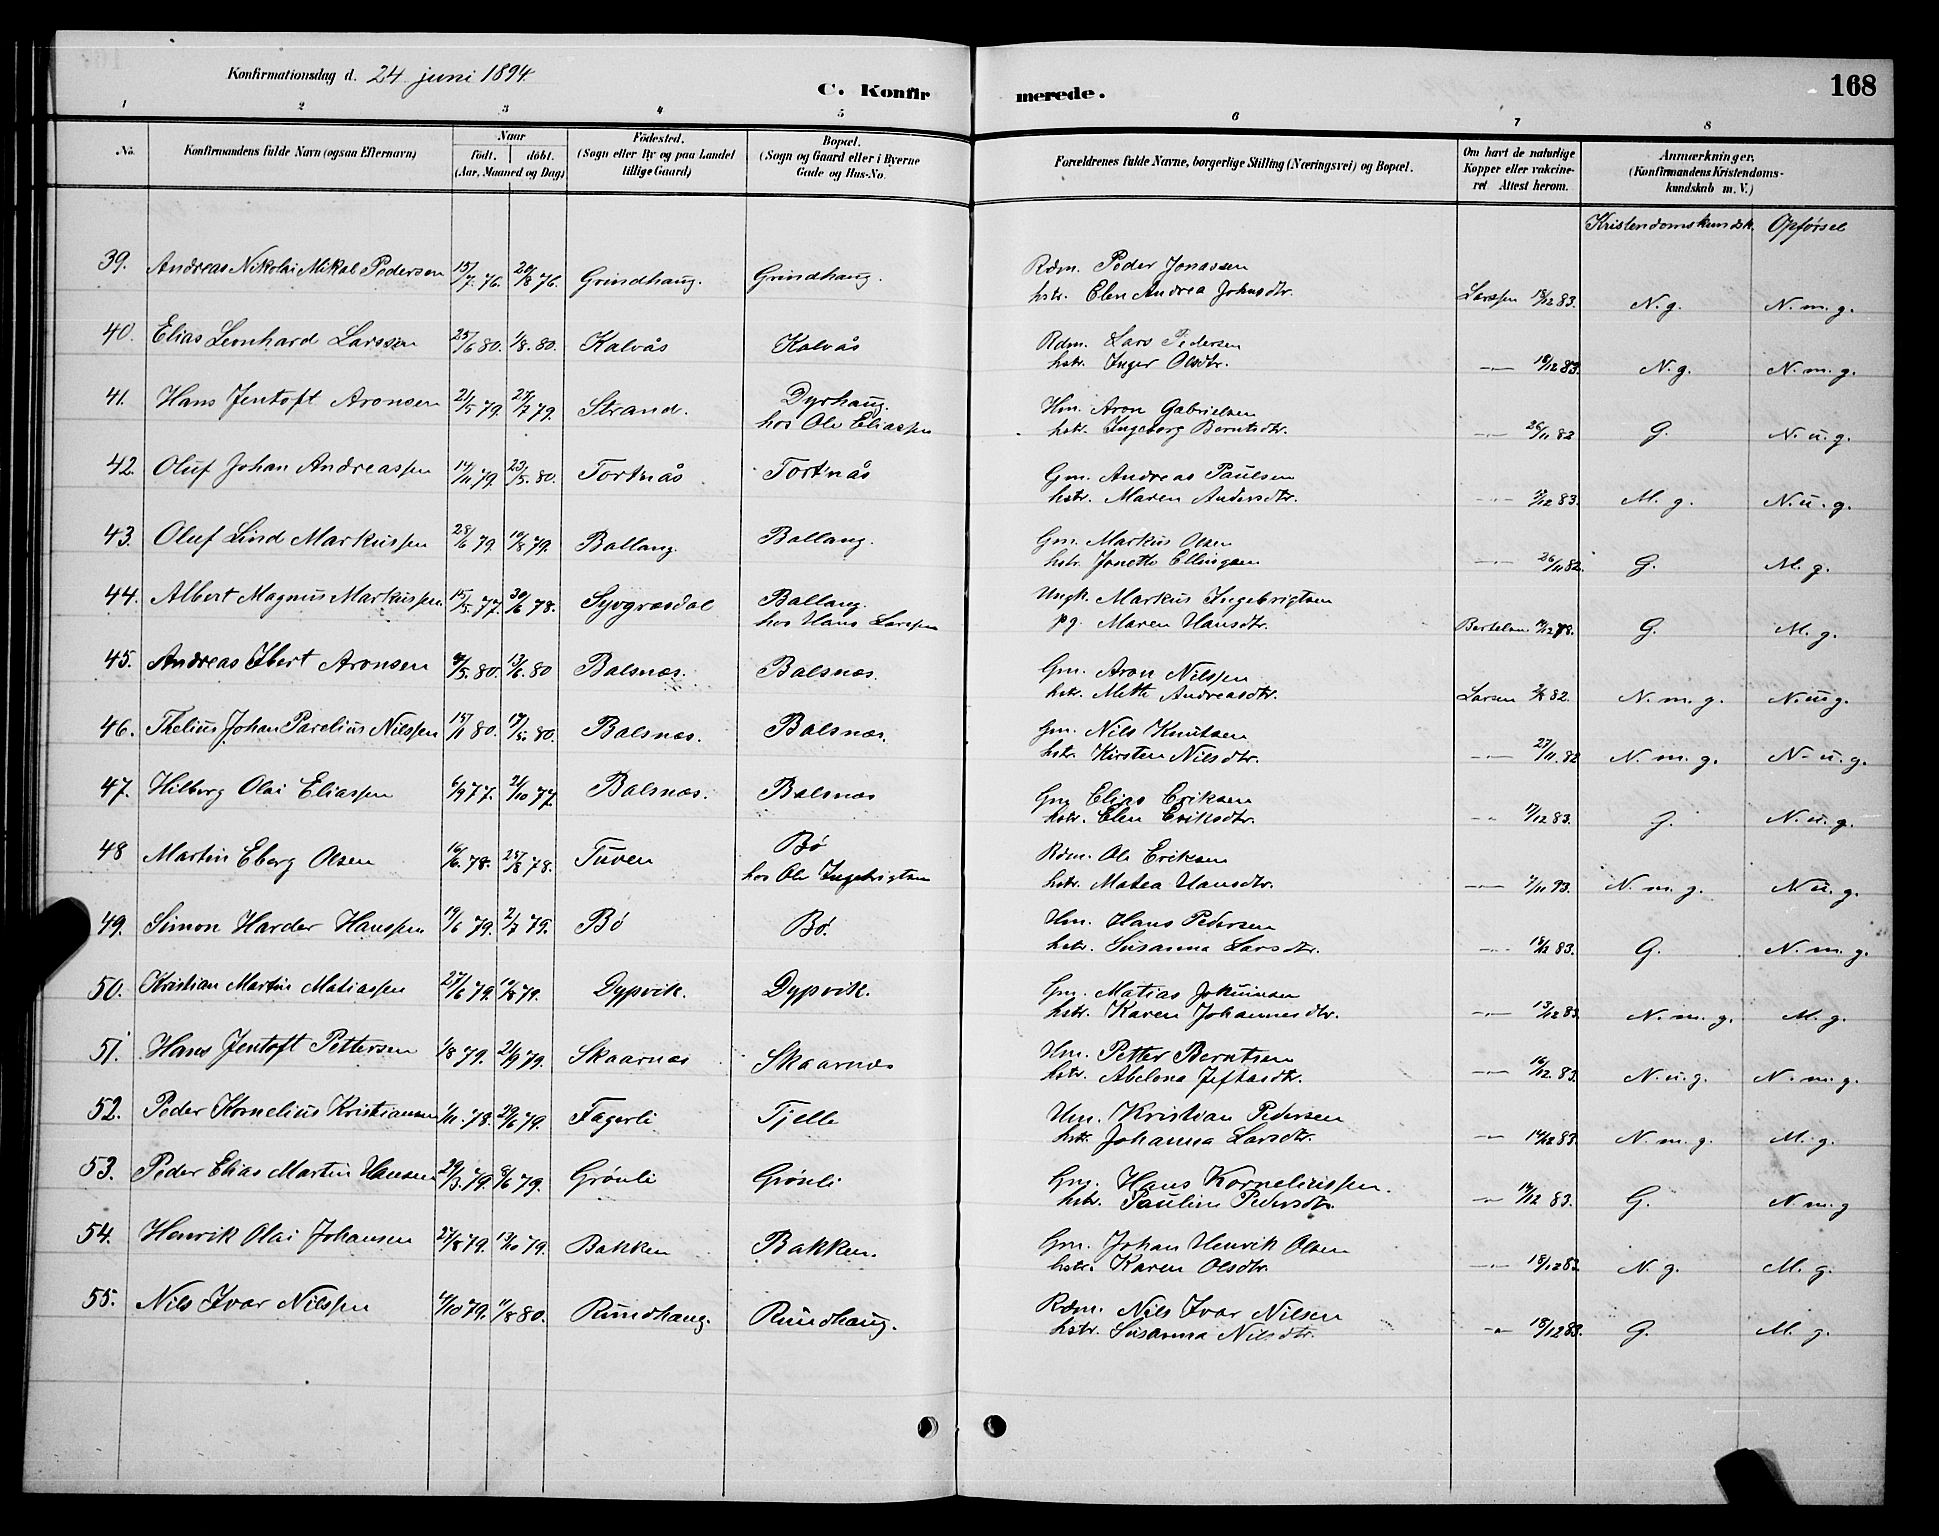 Konfirmationsdag d. 24 juni 1894.
C. Konfirmerede.
168
1 2 3 4 5 6 7 8
No.
Konfirmandens fulde Navn (ogsaa Efternavn)
Naar
födt. döbt.
(Aar, Maaned og Dag)
Födested.
(Sogn eller By og paa Landet
tillige Gaard)
Bopæl.
(Sogn og Gaard eller i Byerne
Gade og Hus-No.
Forældrenes fulde Navne, borgerlige Stilling (Næringsvei) og Bopæl.
Om havt de naturlige
Kopper eller vakcine-
ret Attest herom.
Anmærkninger.
(Konfirmandens Kristendoms-
kundskab m. V.)
Kristendomskundsk. Opførsel
39. Andreas Nikolai Mikal Pedersen 15/7 76. 20/8 76. Grindhaug. Grindhaug. Rdm. Peder Jonassen
hstr. Elen Andrea Johnsdtr. Larssen 18/12 83. N. g. N. m. g.
40. Elias Leonhard Larssen 25/6 80. 1/8. 80. Kalvås Kalvås Rdm. Lars Pedersen
hstr. Inger Olsdtr. —"— 18/12 83. N. g. N. m. g.
41. Hans Jentoft Aronsen 21/5 79. 27/7 79. Strand. Dyrhaug. Hm. Aron Gabrielsen
hos Ole Eliassen hstr. Ingeborg Berntsdtr. —"— 26/11 82 G. N. u. g.
42. Oluf Johan Andreassen 14/11 79. 23/5. 80. Tortnås Tortnås Gm. Andreas Paulsen
hstr. Maren Andersdtr. —"— /12 83. M. g. N. u. g.
43. Oluf Lind Markussen 28/6 79. 10/8 79. Ballang. Ballang. Gm. Markus Olsen
hstr. Jonette Ellingsen —"— 26/11 82. G. M. g.
44. Albert Magnus Markussen 15/5. 77. 30/6 78. Syvgræsdal Ballang. Ungk. Markus Ingebrigtsen
hos Hans Larssen pg. Maren Hansdtr. Bertelsen /12 78. G. M. g.
45. Andreas Ibert Aronsen /5. 80. 13/6 80 Balsnæs. Balsnæs. Gm. Aron Nilssen
hstr. Mette Andreasdtr. Larsen 82. N. m. g. N. u g.
46. Thelius Johan Parelius Nilssen 15/1 80. 17/5. 80. Balsnæs. Balsnæs. Gm. Nils Knutsen
hstr. Kirsten Nilsdtr. —"— 27/11. 82 N. m. g. N. u. g.
47. Hilberg Olai Eliassen 6/9 77. 21/10 77. Balsnæs. Balsnæs Gm. Elias Eriksen
hstr. Elen Eriksdtr. " 17/12 83. G. N. u. g.
48 Martin Eberg Olsen 16/6. 78. 25/8 78. Tuven Bö Rdm. Ole Eriksen
hos Ole Ingebrigtsen hstr. Matea Hansdtr. —"— /11 93. N. m. g. N u. g.
49. Simon Harder Hanssen 19/6 79. 2/7 79. Bö Bö. Hm. Hans Pedersen
hstr. Susanna Larsdtr. —"— 18/12 83. G. N. m. g.
50. Kristian Martin Matiassen 27/6 79. 17/8 79. Dypvik. Dypvik. Gm. Matias Jokumsen
hstr. Karen Johannesdtr. —"— 13/12 83. N. m. g. M. g.
51. Hans Jentoft Pettersen 1/8 79. 21/9 79. Skaarnæs Skaarnæs Hm. Petter Berntsen
hstr. Abelona Jeftasdtr. —"— 16/12. 83. N. u. g. N. m. g.
52. Peder Kornelius Kristiansen 1/11. 78. 29/6 79. Fagerli Tjelle Hm. Kristian Pedersen
hstr. Johanna Larsdtr. —"— 14/12 83. N. m. g. M. g.
53. Peder Elias Martin Hansen 29/3. 79. 8/6 79. Grönli Grönli Gm. Hans Korneliussen.
hstr. Pauline Pedersdtr. —"— 14/12 83. G. N. m. g
54. Henrik Olai Johansen 27/8 79. 19/10 79. Bakken Bakken. Gm. Johan Henrik Olsen
hstr. Karen Olsdtr. —"— 18/12 82 N. g. M. g.
55. Nils Ivar Nilssen /10 79. /8 80. Rundhaug. Rundhaug. Rdm. Nils Ivar Nilsen
hstr. Susanna Nilsdtr. —"— 18/12 83. G. M. g.